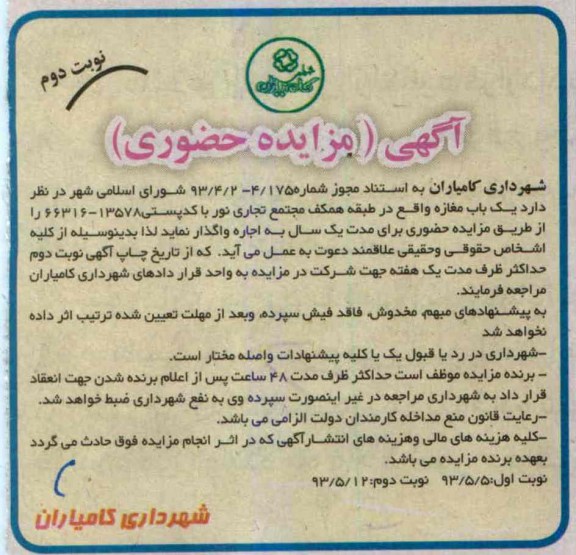 نوبت دوم
آگهی (مزایده حضوری)
شهرداری کامیاران به استناد مجوز شماره۴/۱۷۵- ۹۳/۴/۲ شورای اسلامی شهر در نظر
دارد یک باب مغازه واقع در طبقه همکف مجتمع تجاری نور با کدپستی۱۳۵۷۸-۶۶۳۱۶ را
از طریق مزایده حضوری برای مدت یک سال به اجاره واگذار نماید لذا بدینوسیله از کلیه
اشخاص حقوقی وحقیقی علاقمند دعوت به عمل می آید. که از تاریخ چاپ آگهی نوبت دوم
حداکثر ظرف مدت یک هفته جهت شرکت در مزایده به واحد قرار دادهای شهرداری کامیاران
مراجعه فرمایند.
به پیشنهادهای مبهم، مخدوش، فاقد فیش سپرده، وبعد از مهلت تعیین شده ترتیب اثر داده
نخواهد شد
-شهرداری در رد یا قبول یک یا کلیه پیشنهادات واصله مختار است.
- برنده مزایده موظف است حداکثر ظرف مدت ۴۸ ساعت پس از اعلام برنده شدن جهت انعقاد
قرار داد به شهرداری مراجعه در غیر اینصورت سپرده وی به نفع شهرداری ضبط خواهد شد.
-رعایت قانون منع مداخله کارمندان دولت الزامی می باشد.
-کلیه هزینه های مالی وهزینه های انتشارآگهی که در اثر انجام مزایده فوق حادث می گردد
بعهده برنده مزایده می باشد.
نوبت اول:۹۳/۵/۵ نوبت دوم:۹۳/۵/۱۲
شهرداری کامیاران